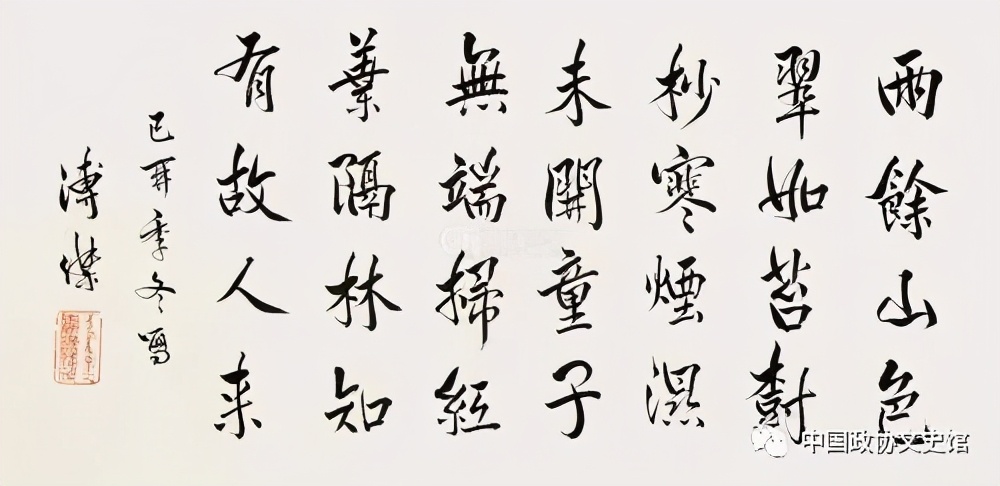 雨餘山色
翠如苔樹
杪寒煙濕
未開童子
無端掃紅
葉隔林知
有故人来
己季冬寫
溥傑
中国政协文史馆